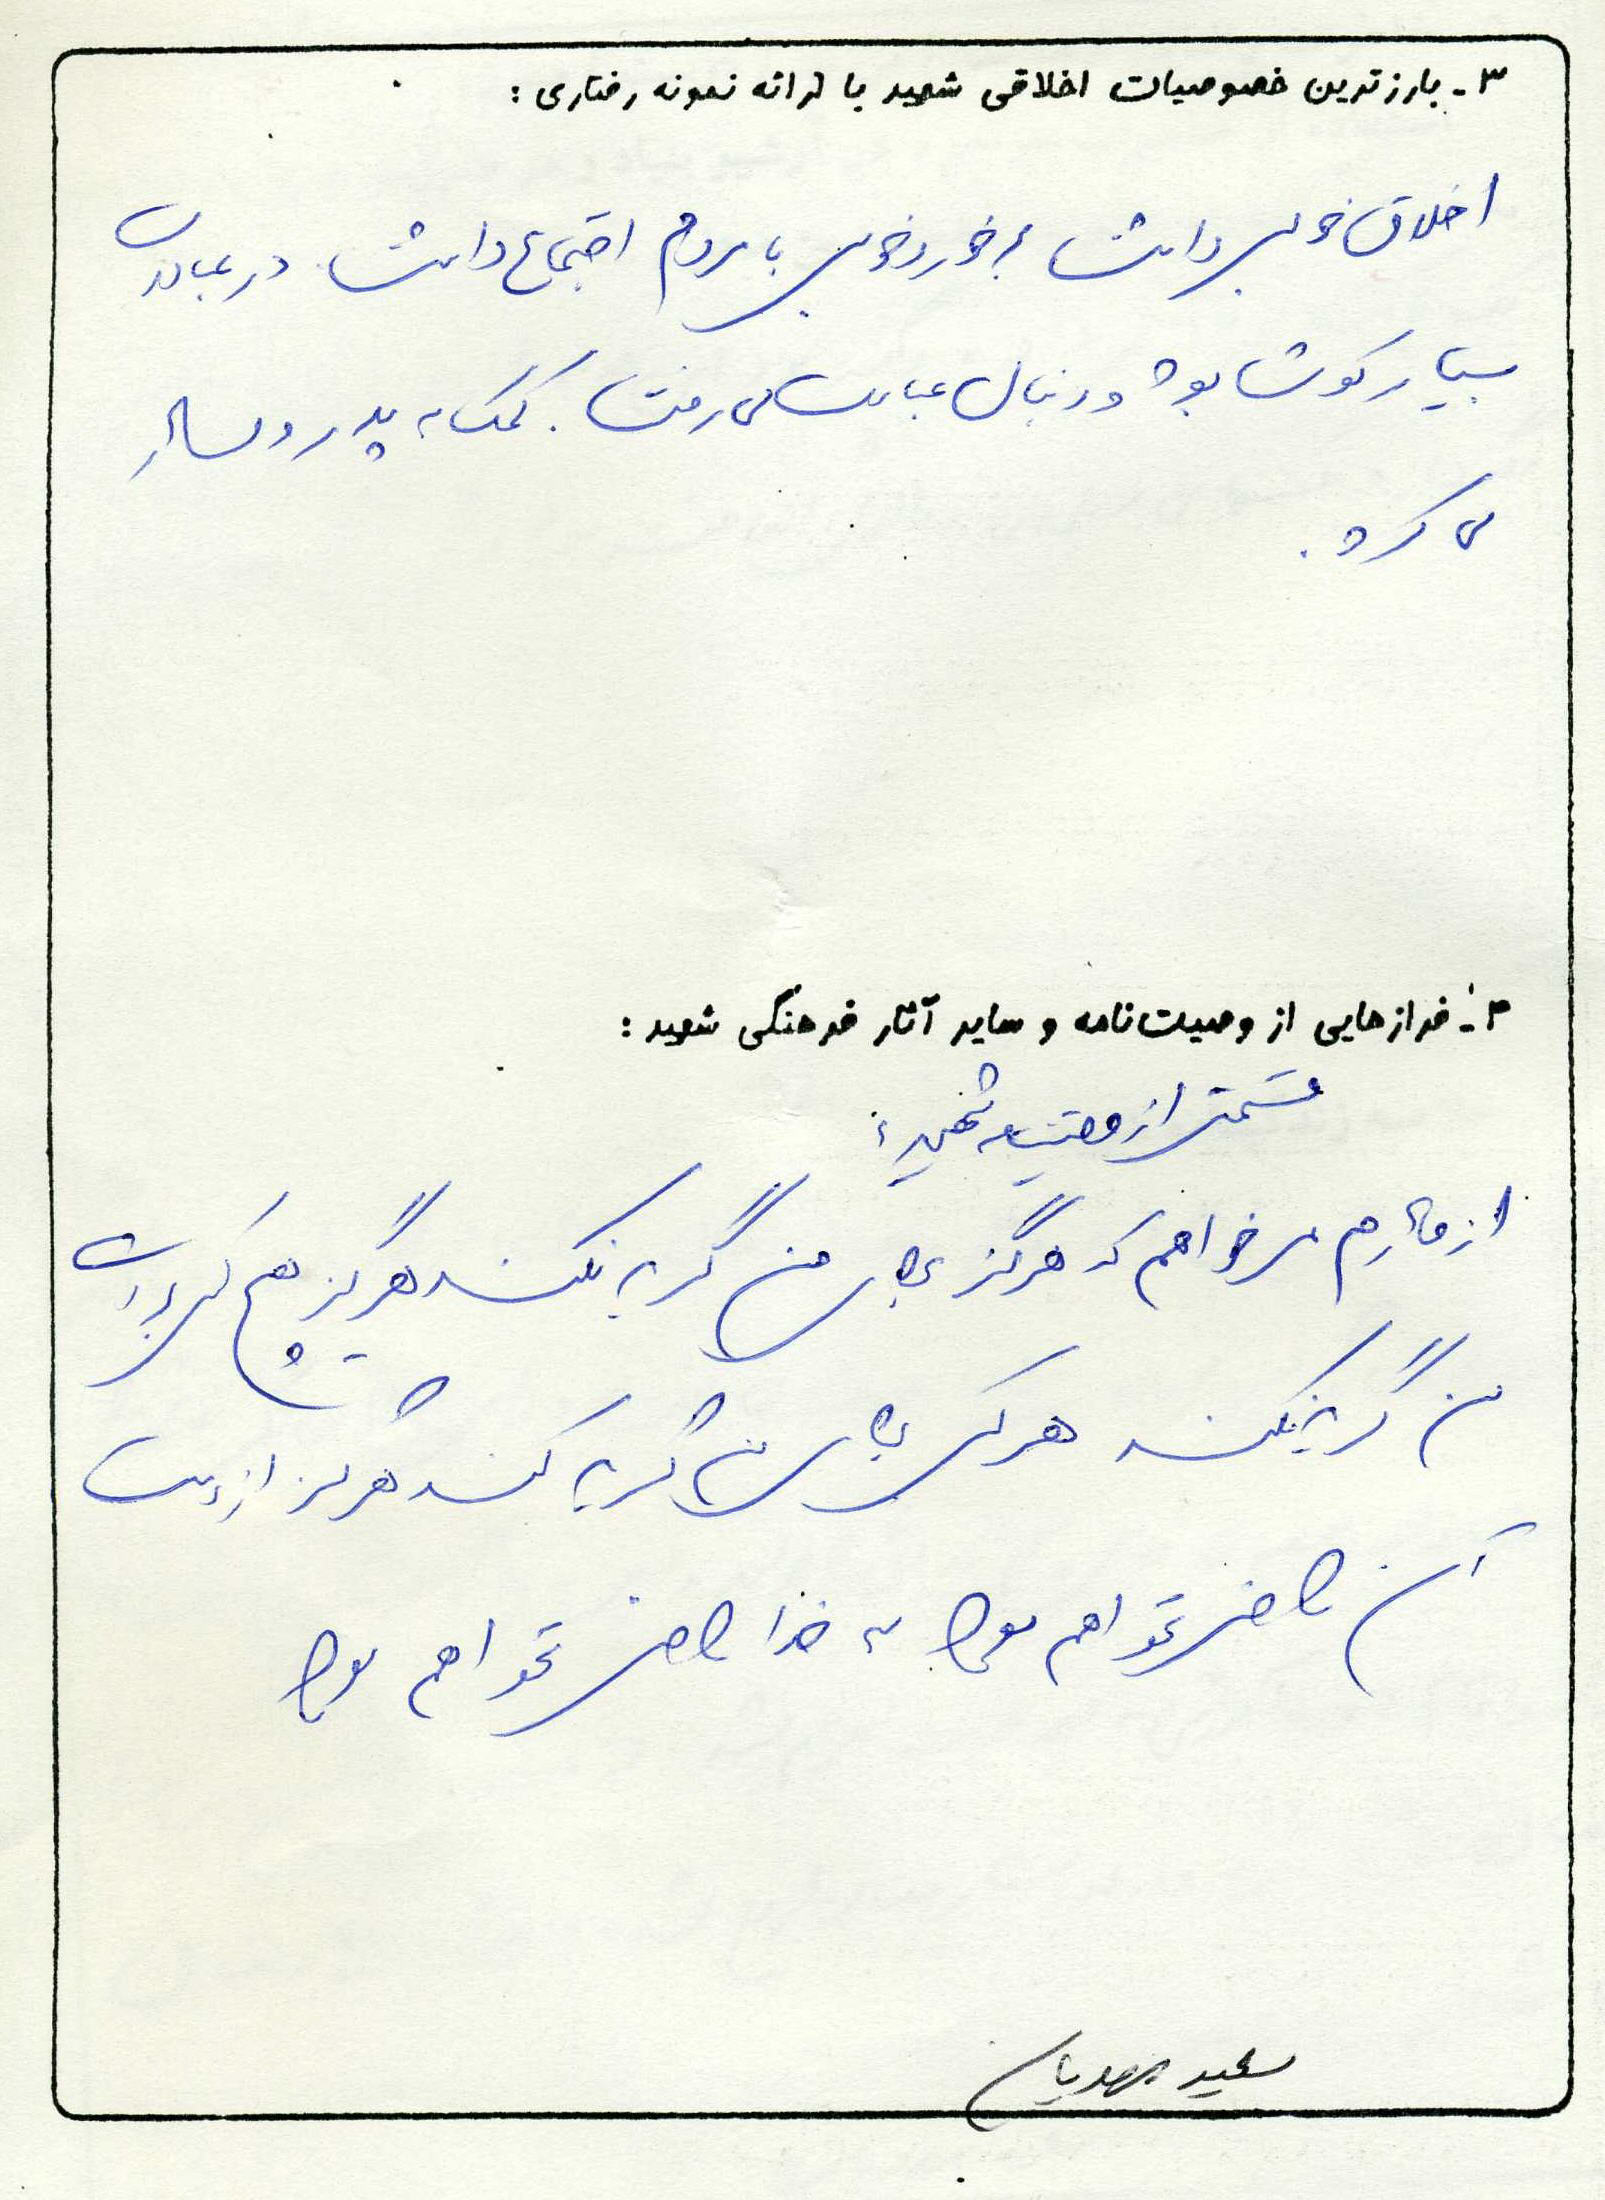 ۳- بارزترین خصوصیات اخلاقی شهید با ارائه نمونه رفتاری :
اخلاق خوبی داشت برخورد خوبی با مردم اجتماع داشت. در عبادت
بسیار کوشا بود و دنبال عبادت می رفت. کمک به پدر و مادر
می کرد.
۴- فرازهایی از وصیت‌نامه و سایر آثار فرهنگی شهید :
قسمتی از وصیتنامه شهید:
از مادرم می خواهم که هرگز برای من گریه نکند هرگز هم کسی برای
من گریه نکند هر کسی برای من گریه کند هرگز از دست
آن راضی نخواهم بود به خدا راضی نخواهم بود
سعید مهدیان